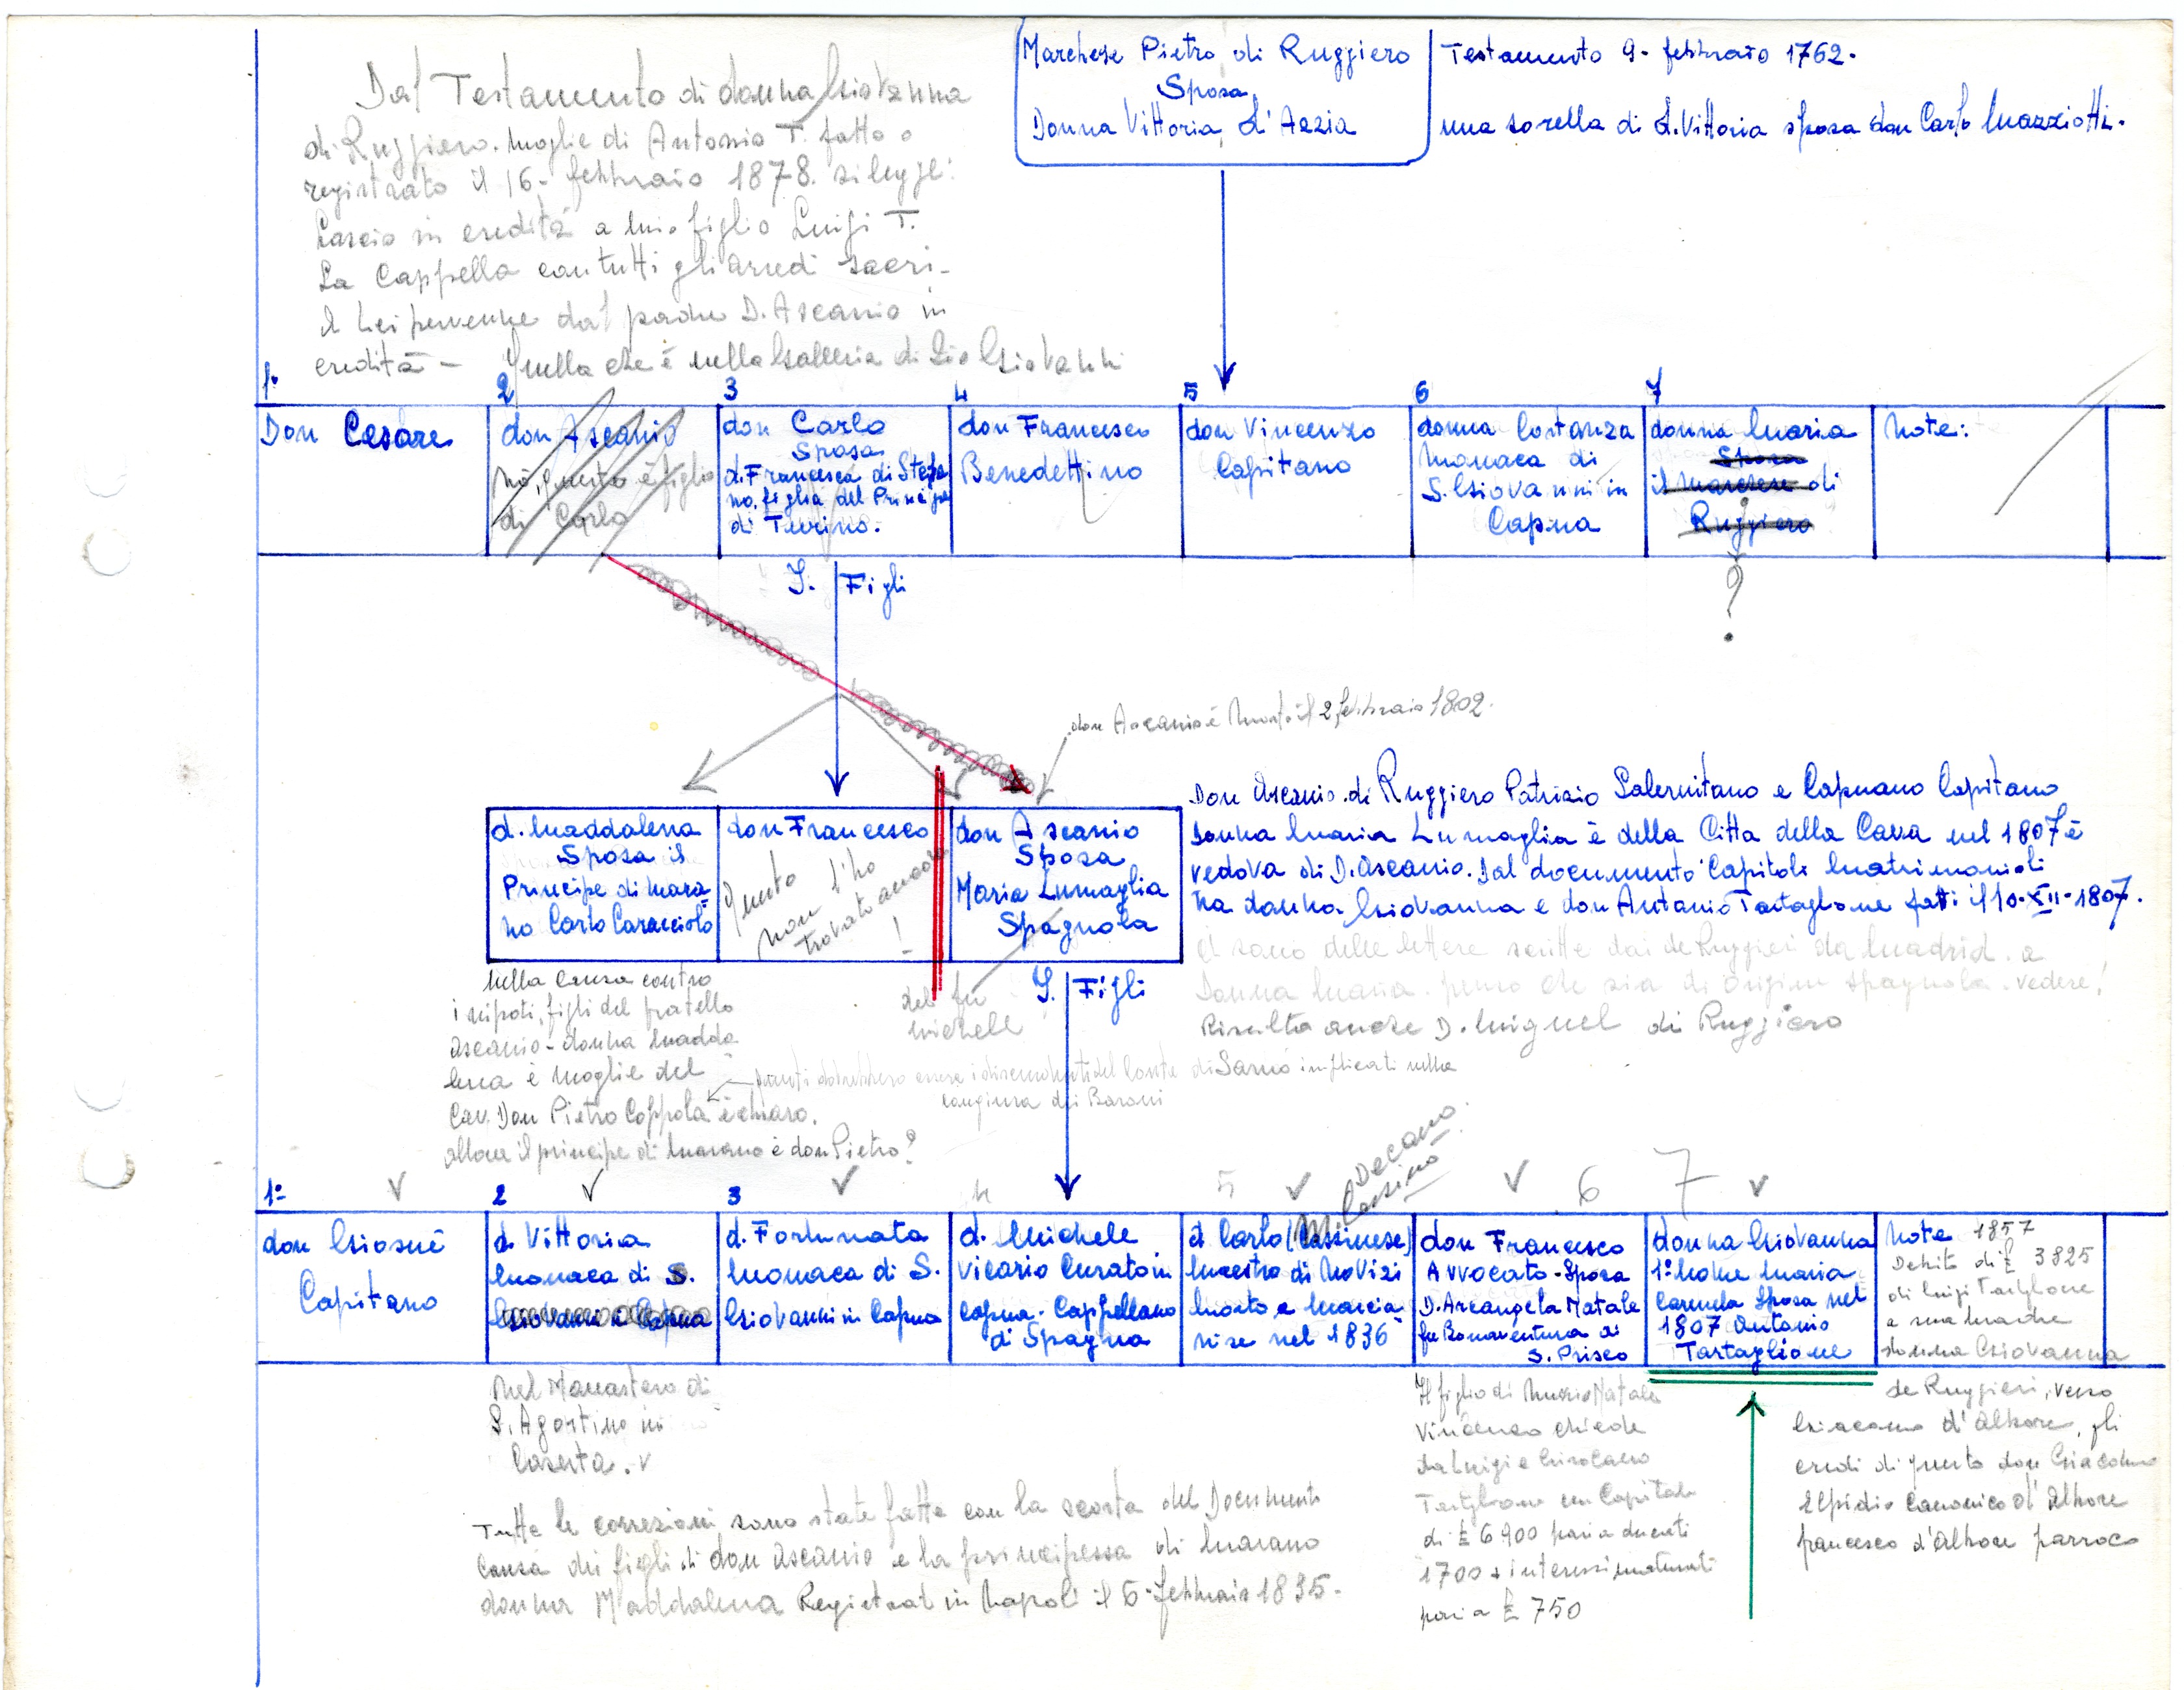 Marchese Pietro di Ruggiero
Sposa
Donna Vittoria d'Azzia
Testamento 9 - febbraio 1762 -
una sorella di d. Vittoria sposa don Carlo Mazziotti.
Dal Testamento di donna Giovanna
di Ruggiero. moglie di Antonio T. fatto e
registrato il 16 - febbraio 1878. si legge:
Lascio in eredità a mio figlio Luigi T.
La Cappella con tutti gli arredi sacri -
A Lei pervenne dal padre D. Ascanio in
eredità - quella che è nella Galleria di Zio Giovanni
1º
Don Cesare
2
don Ascanio
Nò, questo è figlio
di Carlo
3
don Carlo
Sposa
d. Francesca di Stefa
no, figlia del Principe
di
4
don Francesco
Benedettino
5
don Vincenzo
Capitano
6
donna Costanza
Monaca di
S. Giovanni in
Capua
7
donna Maria
Sposa
il Marchese di
Ruggiero
?
Note:
I. Figli
don Ascanio è morto il 2 febbraio 1802.
d. Maddalena
Sposa il
Principe di Mara
no Carlo Caracciolo
don Francesco
Questo l'ho
non trovato ancora
!
don Ascanio
Sposa
Maria Lumaglia
Spagnola
del fu
Michele
Don Ascanio di Ruggiero Patrizio Salernitano e Capuano Capitano
Donna Maria Lumaglia è della Città della Cava nel 1807 è
vedova di D. Ascanio. Dal documento Capitoli Matrimoniali
tra donna Giovanna e don Antonio Tartaglione fatti il 10-XII-1807.
ci sono delle lettere scritte dai de Ruggieri da Madrid. a
Donna Maria. penso che sia di origine spagnola. vedere!
Risulta anche D. Miguel di Ruggiero
I. Figli
Nella Causa contro
i nipoti, figli del fratello
Ascanio - donna Madda
lena è moglie del
Cav. Don Pietro Coppola è chiaro.
allora il principe di Marano è don Pietro?
questi dovrebbero essere i discendenti del Conte di Sarno implicati nella
congiura dei Baroni
1º
don Giosuè
Capitano
2
d. Vittoria
Monaca di S.
Giovanni in Capua
Nel Monastero di
S. Agostino in
Caserta.
3
d. Fortunata
Monaca di S.
Giovanni in Capua
4
d. Michele
Vicario Curato in
Capua - Cappellano
di Spagna
5
d. Carlo (Cassinese)
Maestro di Novizi
morto a Marcia
nise nel 1836
Decano
M. Cassino
6
don Francesco
Avvocato - Sposa
D. Arcangela Natale
fu Bonaventura di
S. Prisco
7
donna Giovanna
1º nome Maria
Carmela Sposa nel
1807 Antonio
Tartaglione
Note 1857
Debito di £ 3825
di Luigi Tartaglione
a sua madre
donna Giovanna
de Ruggieri, verso
Giacomo d'Albore, gli
eredi di questo don Giacomo
Elpidio Canonico d'Albore
Francesco d'Albore parroco
Il figlio di Natale
Vincenzo chiede
da Luigi e Girolamo
Tartaglione un Capitale
di £ 6900 pari a ducati
1700 + interessi maturati
pari a £ 750
Tutte le correzioni sono state fatte con la scorta del Documento
Causa dei figli di don Ascanio e la principessa di Marano
donna Maddalena Registrat in Napoli il 6 - febbraio 1835 -